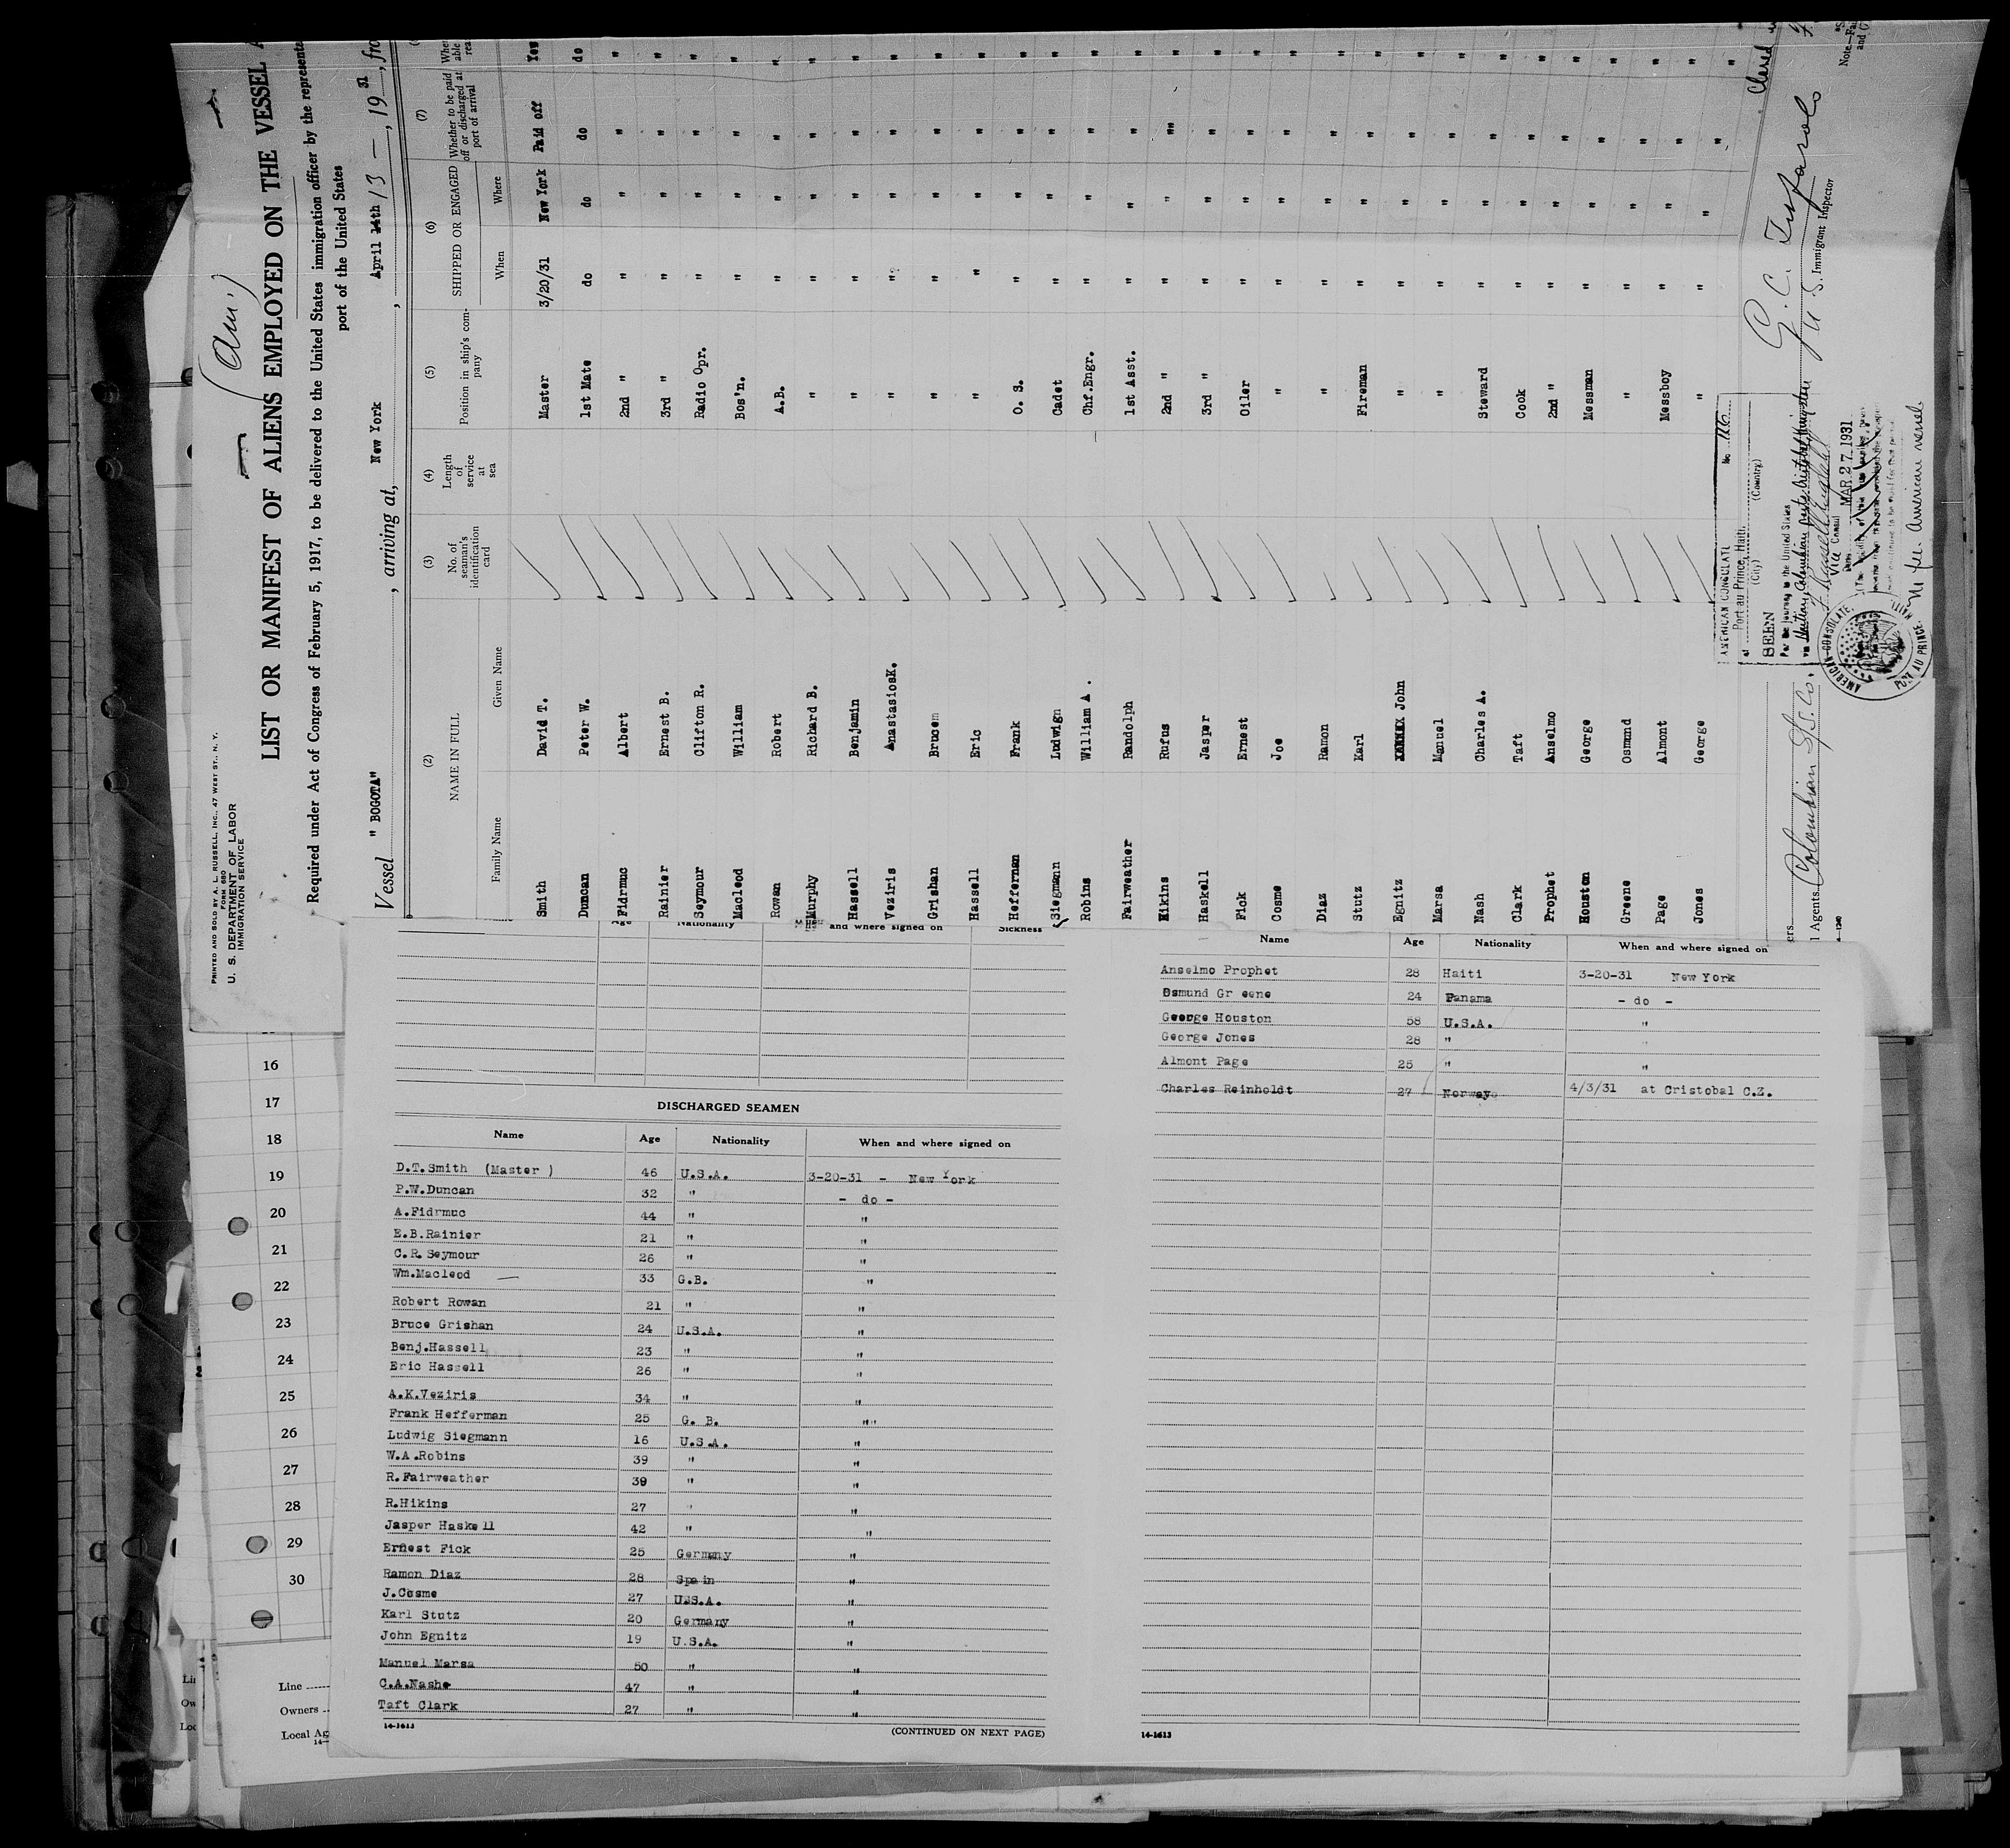 (Am.)
PRINTED AND SOLD BY A. L. RUSSELL, INC., 47 WEST ST., N. Y.
FORM 680
U. S. DEPARTMENT OF LABOR
IMMIGRATION SERVICE
LIST OR MANIFEST OF ALIENS EMPLOYED ON THE VESSEL A
Required under Act of Congress of February 5, 1917, to be delivered to the United States immigration officer by the representa
port of the United States
Vessel "BOGOTA", arriving at, New York, April 14th 13 -, 1931, fro
(2) NAME IN FULL (3) No. of seaman's identification card (4) Length of service at sea (5) Position in ship's company (6) SHIPPED OR ENGAGED (7) Whether to be paid off or discharged at port of arrival
Family Name Given Name When Where
Smith David T. Master 3/20/31 New York Paid off Yes
Duncan Peter W. 1st Mate do do do do
Fidrmuc Albert 2nd " " " " "
Rainier Ernest B. 3rd " " " " "
Seymour Clifton R. Radio Opr. " " " "
Macleod William Bos'n. " " " "
Rowan Robert A.B. " " " "
Murphy Richard B. " " " " "
Hassell Benjamin " " " " "
Veziris AnastasiosK. " " " " "
Grishan Brucem " " " " "
Hassell Eric " " " " "
Heffernan Frank O. S. " " " "
Siegmann Ludwign Cadet " " " "
Robins William A. Chf.Engr. " " " "
Fairweather Randolph 1st Asst. " " " "
Hikins Rufus 2nd " " " "" "
Haskell Jasper 3rd " " " " "
Fick Ernest Oiler " " " "
Cosme Joe " " " " "
Diaz Ramon " " " " "
Stutz Karl Fireman " " " "
Egnitz John " " " " "
Marsa Manuel " " " " "
Nash Charles A. Steward " " " "
Clark Taft Cook " " " "
Prophet Anselmo 2nd " " " " "
Houston George Messman " " " "
Greene Osmund " " " " "
Page Almont Messboy " " " "
Jones George " " " " "
AMERICAN CONSULATE No. 116
at Port au Prince, Haiti.
(City) (Country)
SEEN
For the journey to the United States
via Haitian, Colombian ports, Cristobal, Kingston
Vice Consul
Date MAR 27 1931
AMERICAN CONSULATE, PORT AU PRINCE, HAITI
Nl fee. American vessel.
G. C. Tufarolo
U. S. Immigrant Inspector
Note—Fa
and
l Agents. Colombian S/S. Co.
Nationality and where signed on Sickness
DISCHARGED SEAMEN
Name Age Nationality When and where signed on
D.T.Smith (Master ) 46 U.S.A. 3-20-31 - New York
P.W.Duncan 32 " - do -
A.Fidrmuc 44 " "
E.B.Rainier 21 " "
C.R.Seymour 26 " "
Wm.Macleod 33 G.B. "
Robert Rowan 21 " "
Bruce Grishan 24 U.S.A. "
Benj.Hassell 23 " "
Eric Hassell 26 " "
A.K.Veziris 34 " "
Frank Hefferman 25 G. B. ""
Ludwig Siegmann 16 U.S.A. "
W.A.Robins 39 " "
R.Fairweather 39 " "
R.Hikins 27 " "
Jasper Haskell 42 " "
Ernest Fick 25 Germany "
Ramon Diaz 28 Spain "
J.Cosme 27 USS.A. "
Karl Stutz 20 Germany "
John Egnitz 19 U.S.A. "
Manuel Marsa 50 " "
C.A.Nashe 47 " "
Taft Clark 27 " "
14-1613 (CONTINUED ON NEXT PAGE)
Name Age Nationality When and where signed on
Anselmo Prophet 28 Haiti 3-20-31 New York
Osmund Gr eene 24 Panama - do -
George Houston 58 U.S.A. "
George Jones 28 " "
Almont Page 25 " "
Charles Reinholdt 27 Norway 4/3/31 at Cristobal C.Z.
14-1613
16
17
18
19
20
21
22
23
24
25
26
27
28
29
30
Line
Owners
Local Ag
14—